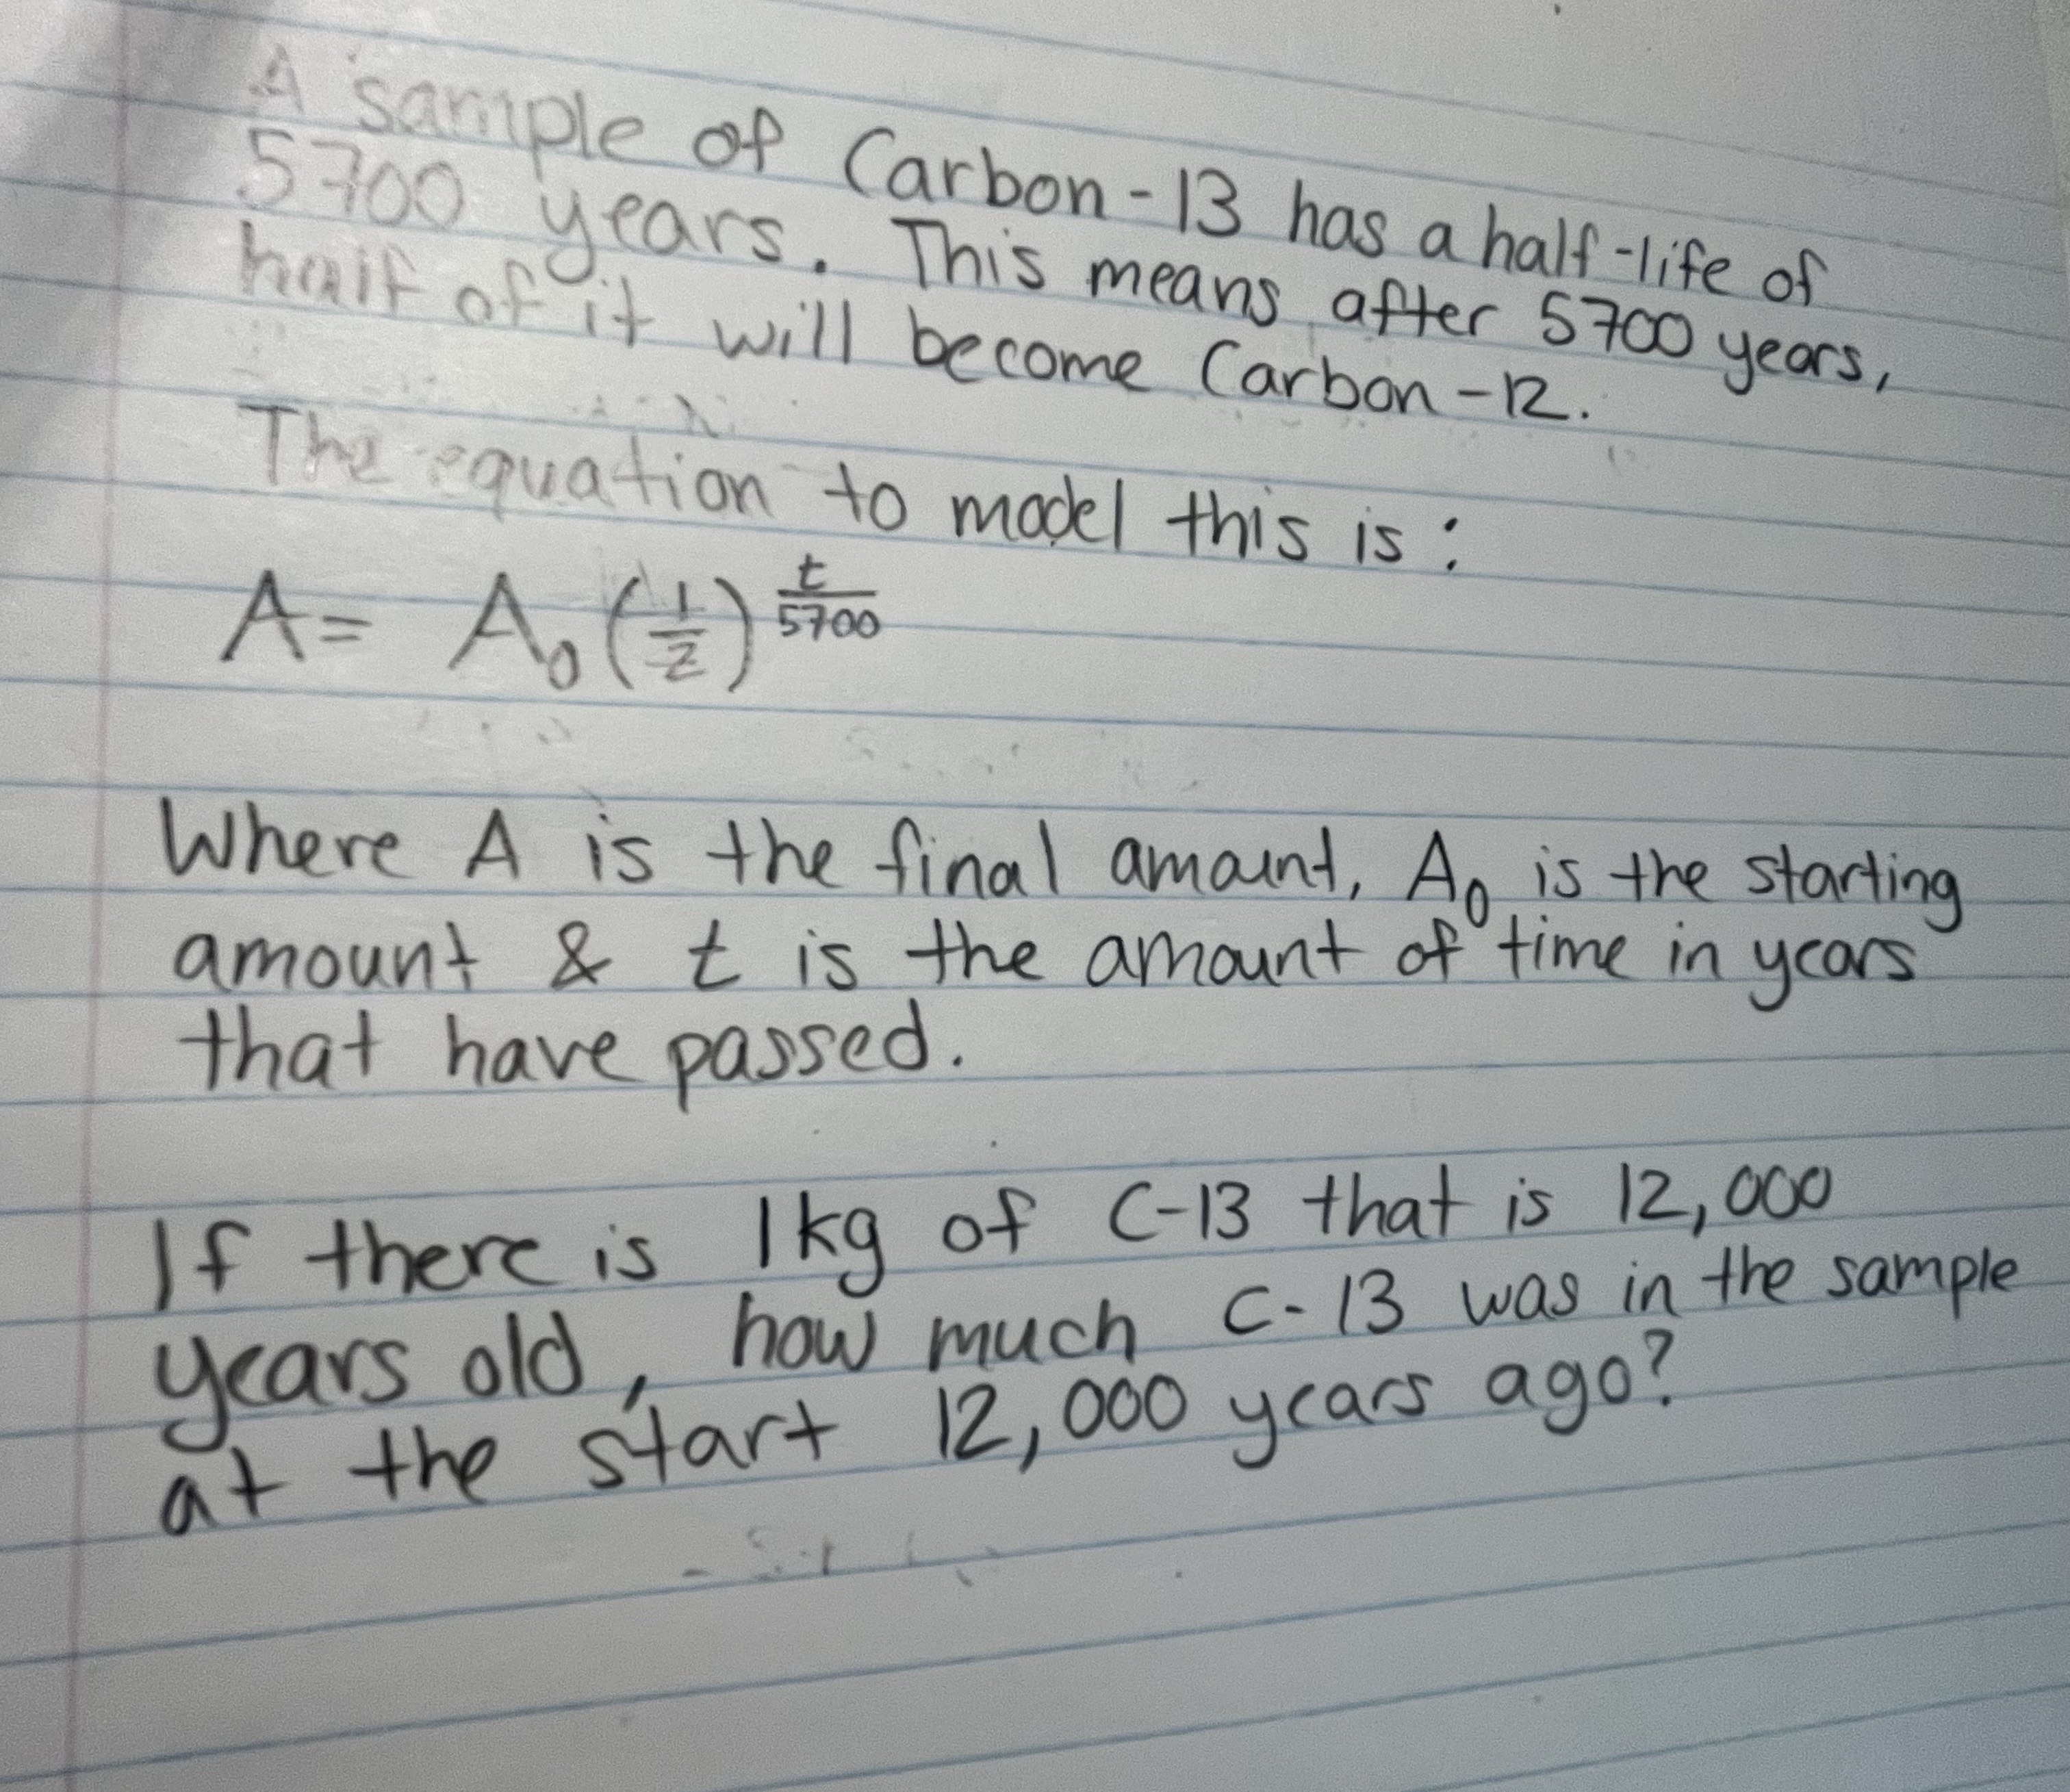 A sample of Carbon-13 has a half-life of
5700 years. This means after 5700 years,
half of it will become Carbon-12.
The equation to model this is:
A = A₀(1/2)^(t/5700)
Where A is the final amount, A₀ is the starting
amount & t is the amount of time in years
that have passed.
If there is 1kg of C-13 that is 12,000
years old, how much C-13 was in the sample
at the start 12,000 years ago?